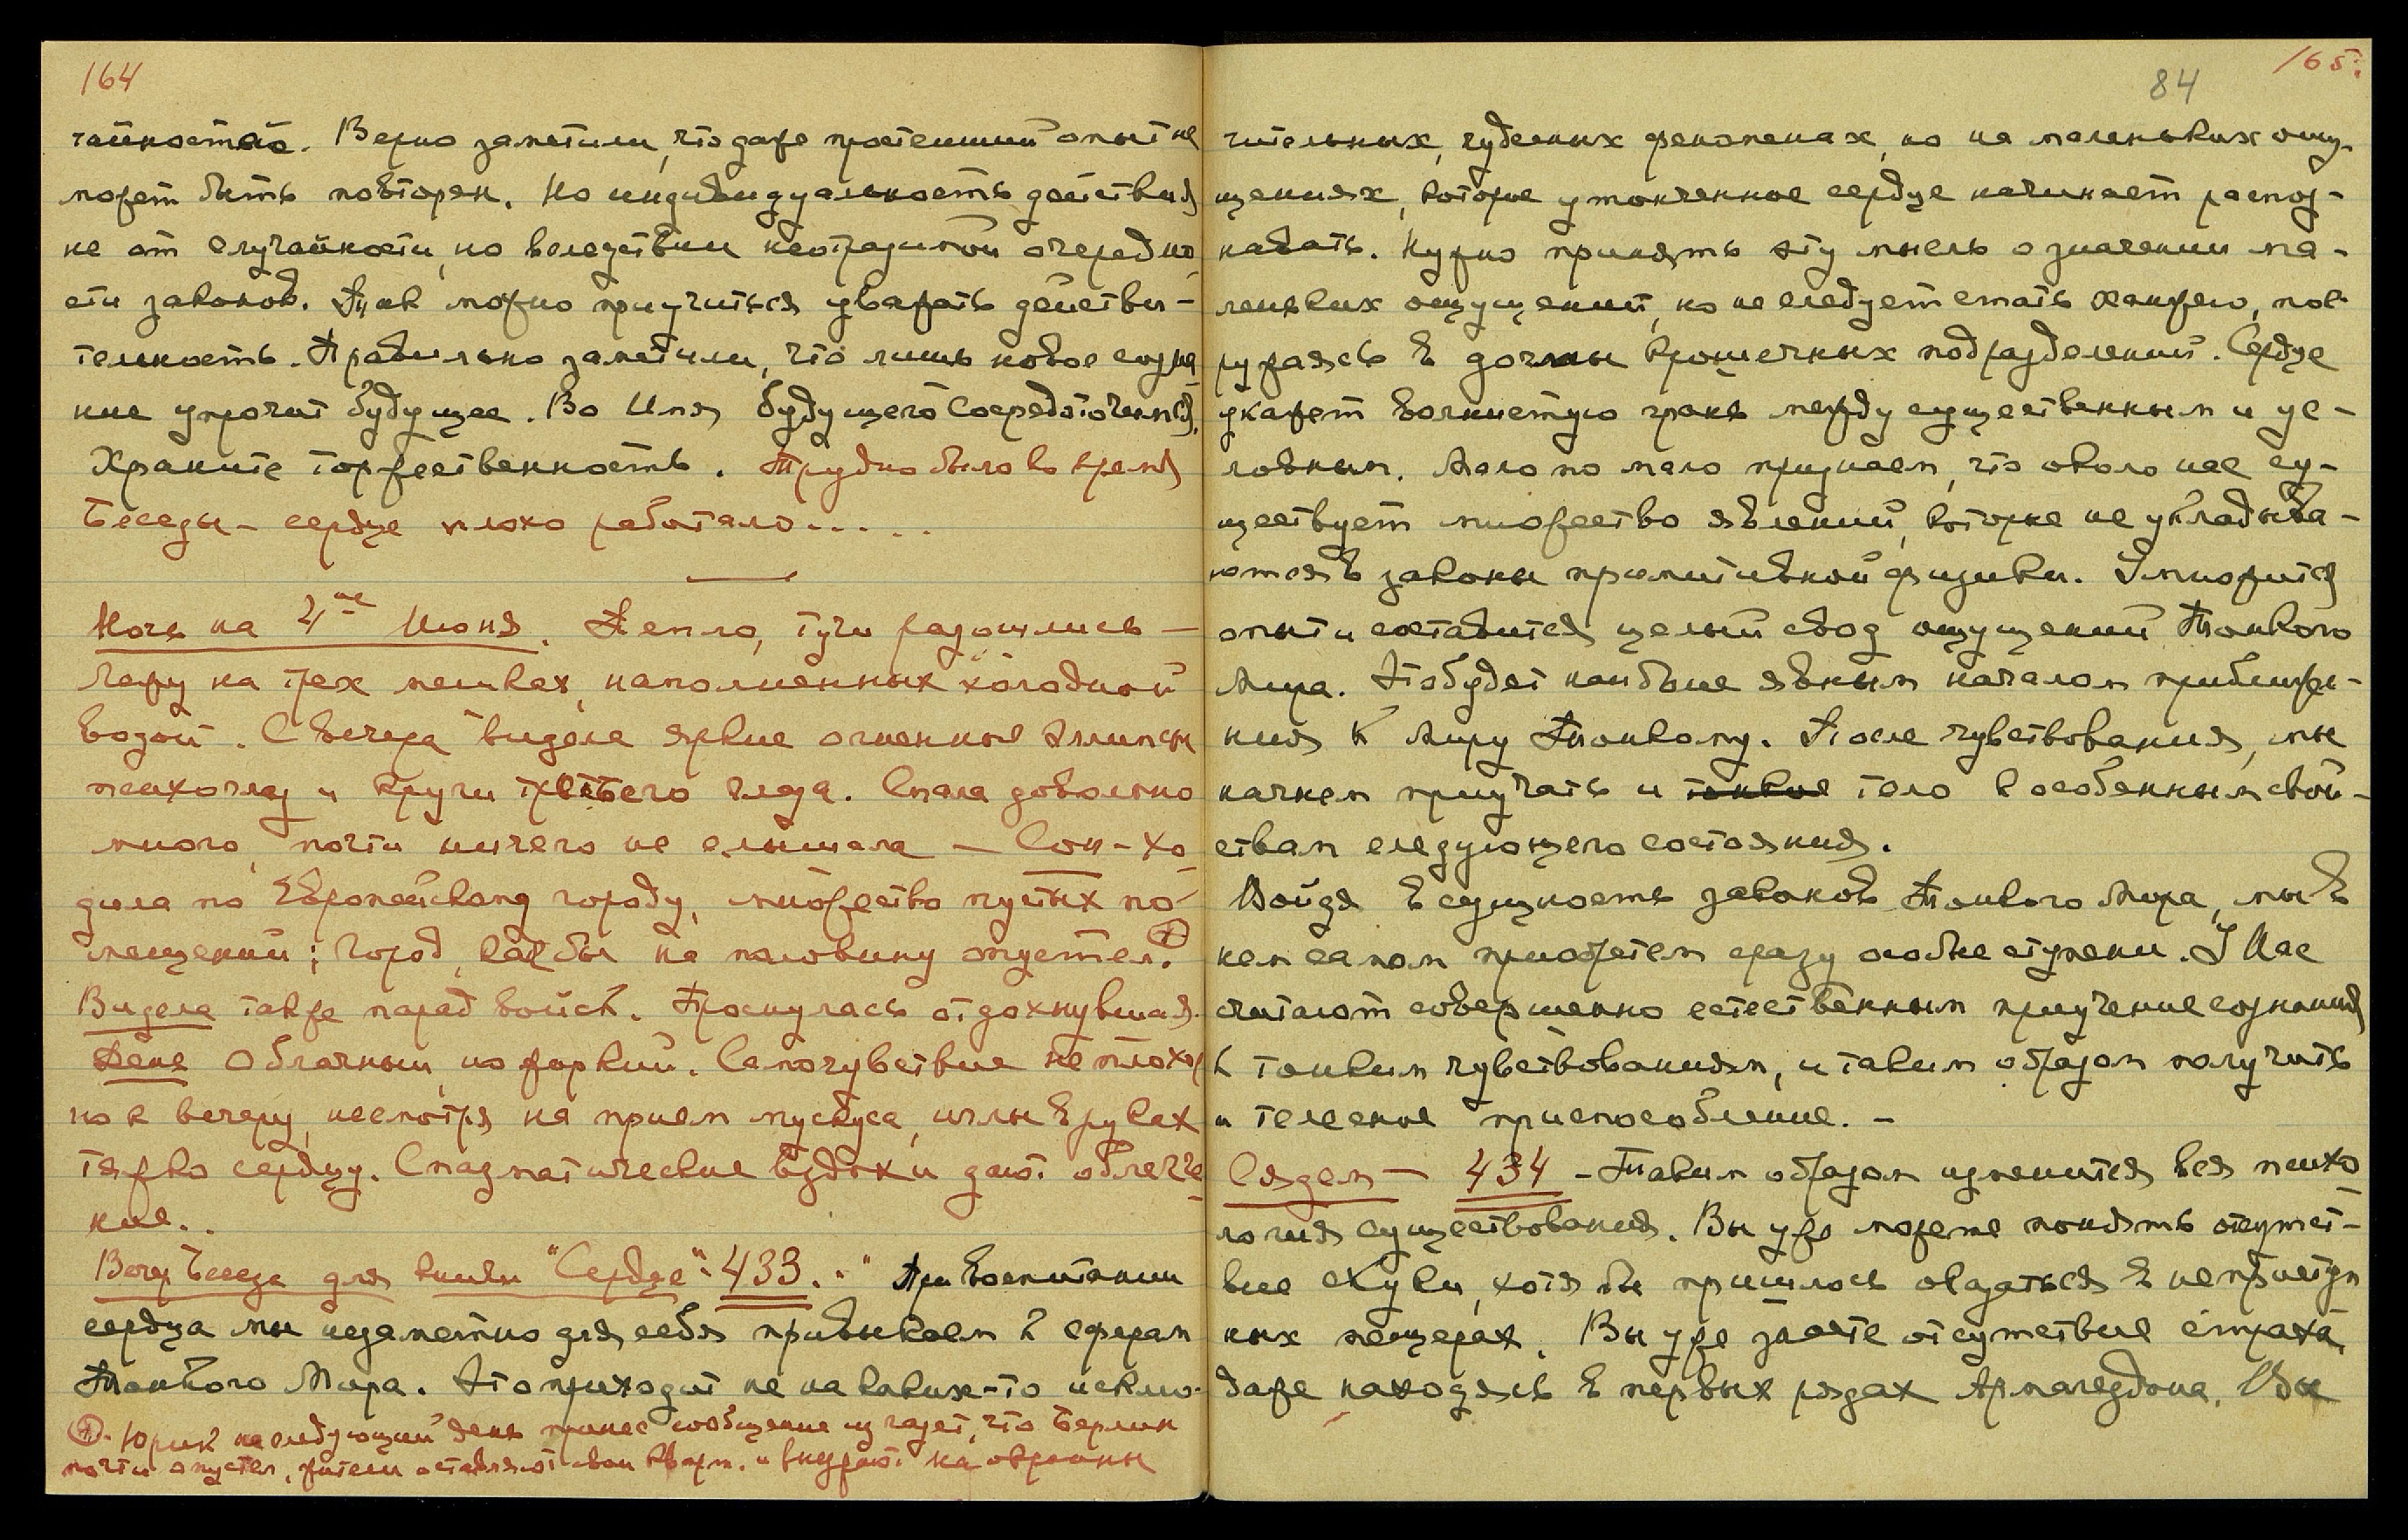 164
чайностей. Верно заметили, что даже простейший опыт не
может быть повторен. Но индивидуальность действия
не от случайности, но вследствии неотразимой очередно
сти законов. Так можно приучиться уважать действи-
тельность. Правильно заметили, что лишь новое созна-
ние упрочит будущее. Во Имя будущего сосредоточимся.
Храните торжественность. Трудно было во время
Беседы – сердце плохо работало.....
Ночь на 4ое Июня. Тепло, тучи разошлись –
Лежу на трех мешках, наполненных холодной
водой. С вечера видела яркие огненные эллипсы
психоглаз и круги третьего глаза. Спала довольно
много, почти ничего не слышала – Сон – хо
дила по Европейскому городу, множество пустых по-
мещений; город, как бы на половину опустел. +
Видела также парад войск. Проснулась отдохнувшая.
День облачный, но жаркий. Самочувствие не плохое,
но к вечеру, несмотря на прием мускуса, иглы в руках
тяжко сердцу. Спазматические вздохи дают облегче
ние..
Веч. Беседа для книги "Сердце". 433. " При воспитании
сердца мы незаметно для себя привыкаем к сферам
Тонкого Мира. Это приходит не на каких-то исклю-
+. Юрик на следующий день принес сообщение из газет, что Берлин
почти опустел, жители оставляют свои кварт. и выезжают на окраины
84
165.
чительных, чудесных феноменах, но на маленьких ощу-
щениях, которые утонченное сердце начинает распоз-
навать. Нужно принять эту мысль о значении ма-
леньких ощущений, но не следует стать ханжею, пог
ружаясь в догмы крошечных подразделений. Сердце
укажет волнистую грань между существенным и ус-
ловным. Мало по мало признаем, что около нас су-
ществует множество явлений, которые не укладыва-
ются в законы примитивной физики. Умножится
опыт и составится целый свод ощущений Тонкого
Мира. Это будет наиболее явным началом приближе-
ния к Миру Тонкому. После чувствования, мы
начнем приучать и тонкое тело к особенным свой-
ствам следующего состояния.
Войдя в сущность законов Тонкого Мира, мы в
нем самом приобретем сразу особые ступени. У Нас
считают совершенно естественным приучение сознания
к тонким чувствованиям, и таким образом получить
и телесное приспособление. –
Сядем – 434 – Таким образом изменится вся психо
логия существования. Вы уже можете понять отсутст-
вие скуки, хотя бы пришлось оказаться в неприступ
ных пещерах. Вы уже знаете отсутствие страха,
даже находясь в первых рядах Армагеддона. Вы